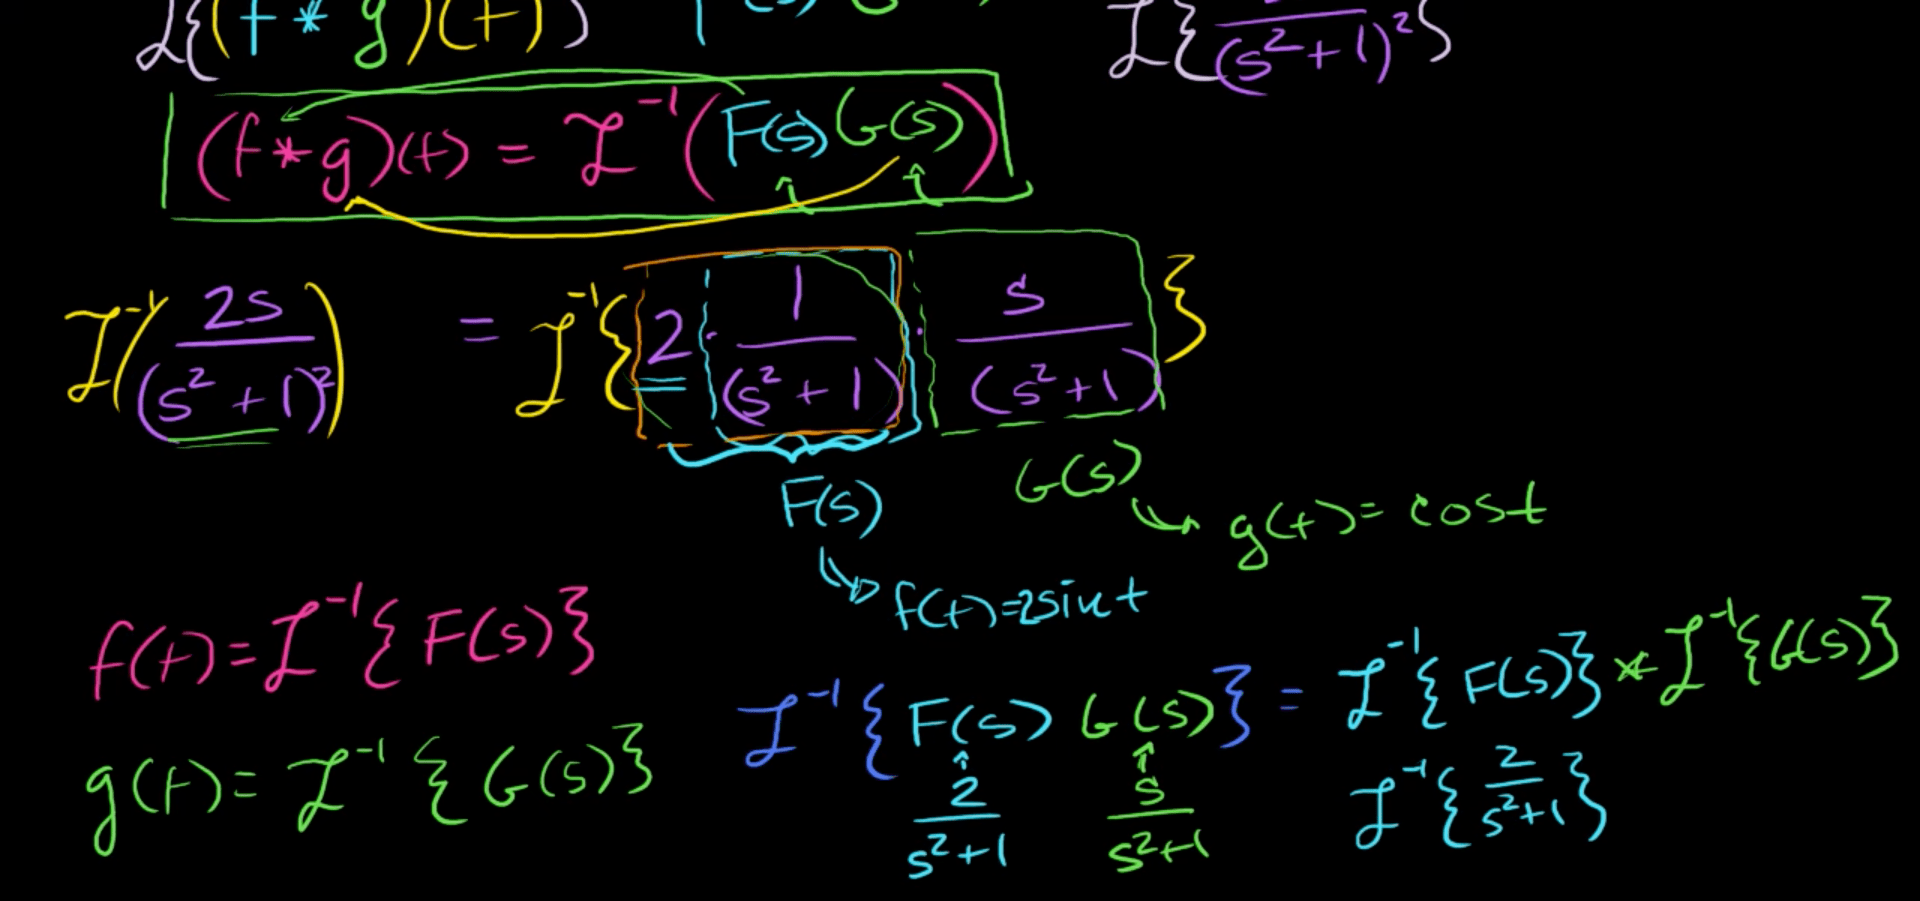 ℒ{(f * g)(t)}
ℒ{ /(s²+1)²}
(f*g)(t) = ℒ⁻¹(F(s)G(s))
ℒ⁻¹(2s/(s²+1)²) = ℒ⁻¹{2 · 1/(s²+1) · s/(s²+1)}
F(s)
G(s)
g(t) = cos t
f(t)=2sin t
f(t)=ℒ⁻¹{F(s)}
g(t)=ℒ⁻¹{G(s)}
ℒ⁻¹{F(s) G(s)} = ℒ⁻¹{F(s)} * ℒ⁻¹{G(s)}
2/(s²+1) s/(s²+1)
ℒ⁻¹{2/(s²+1)}